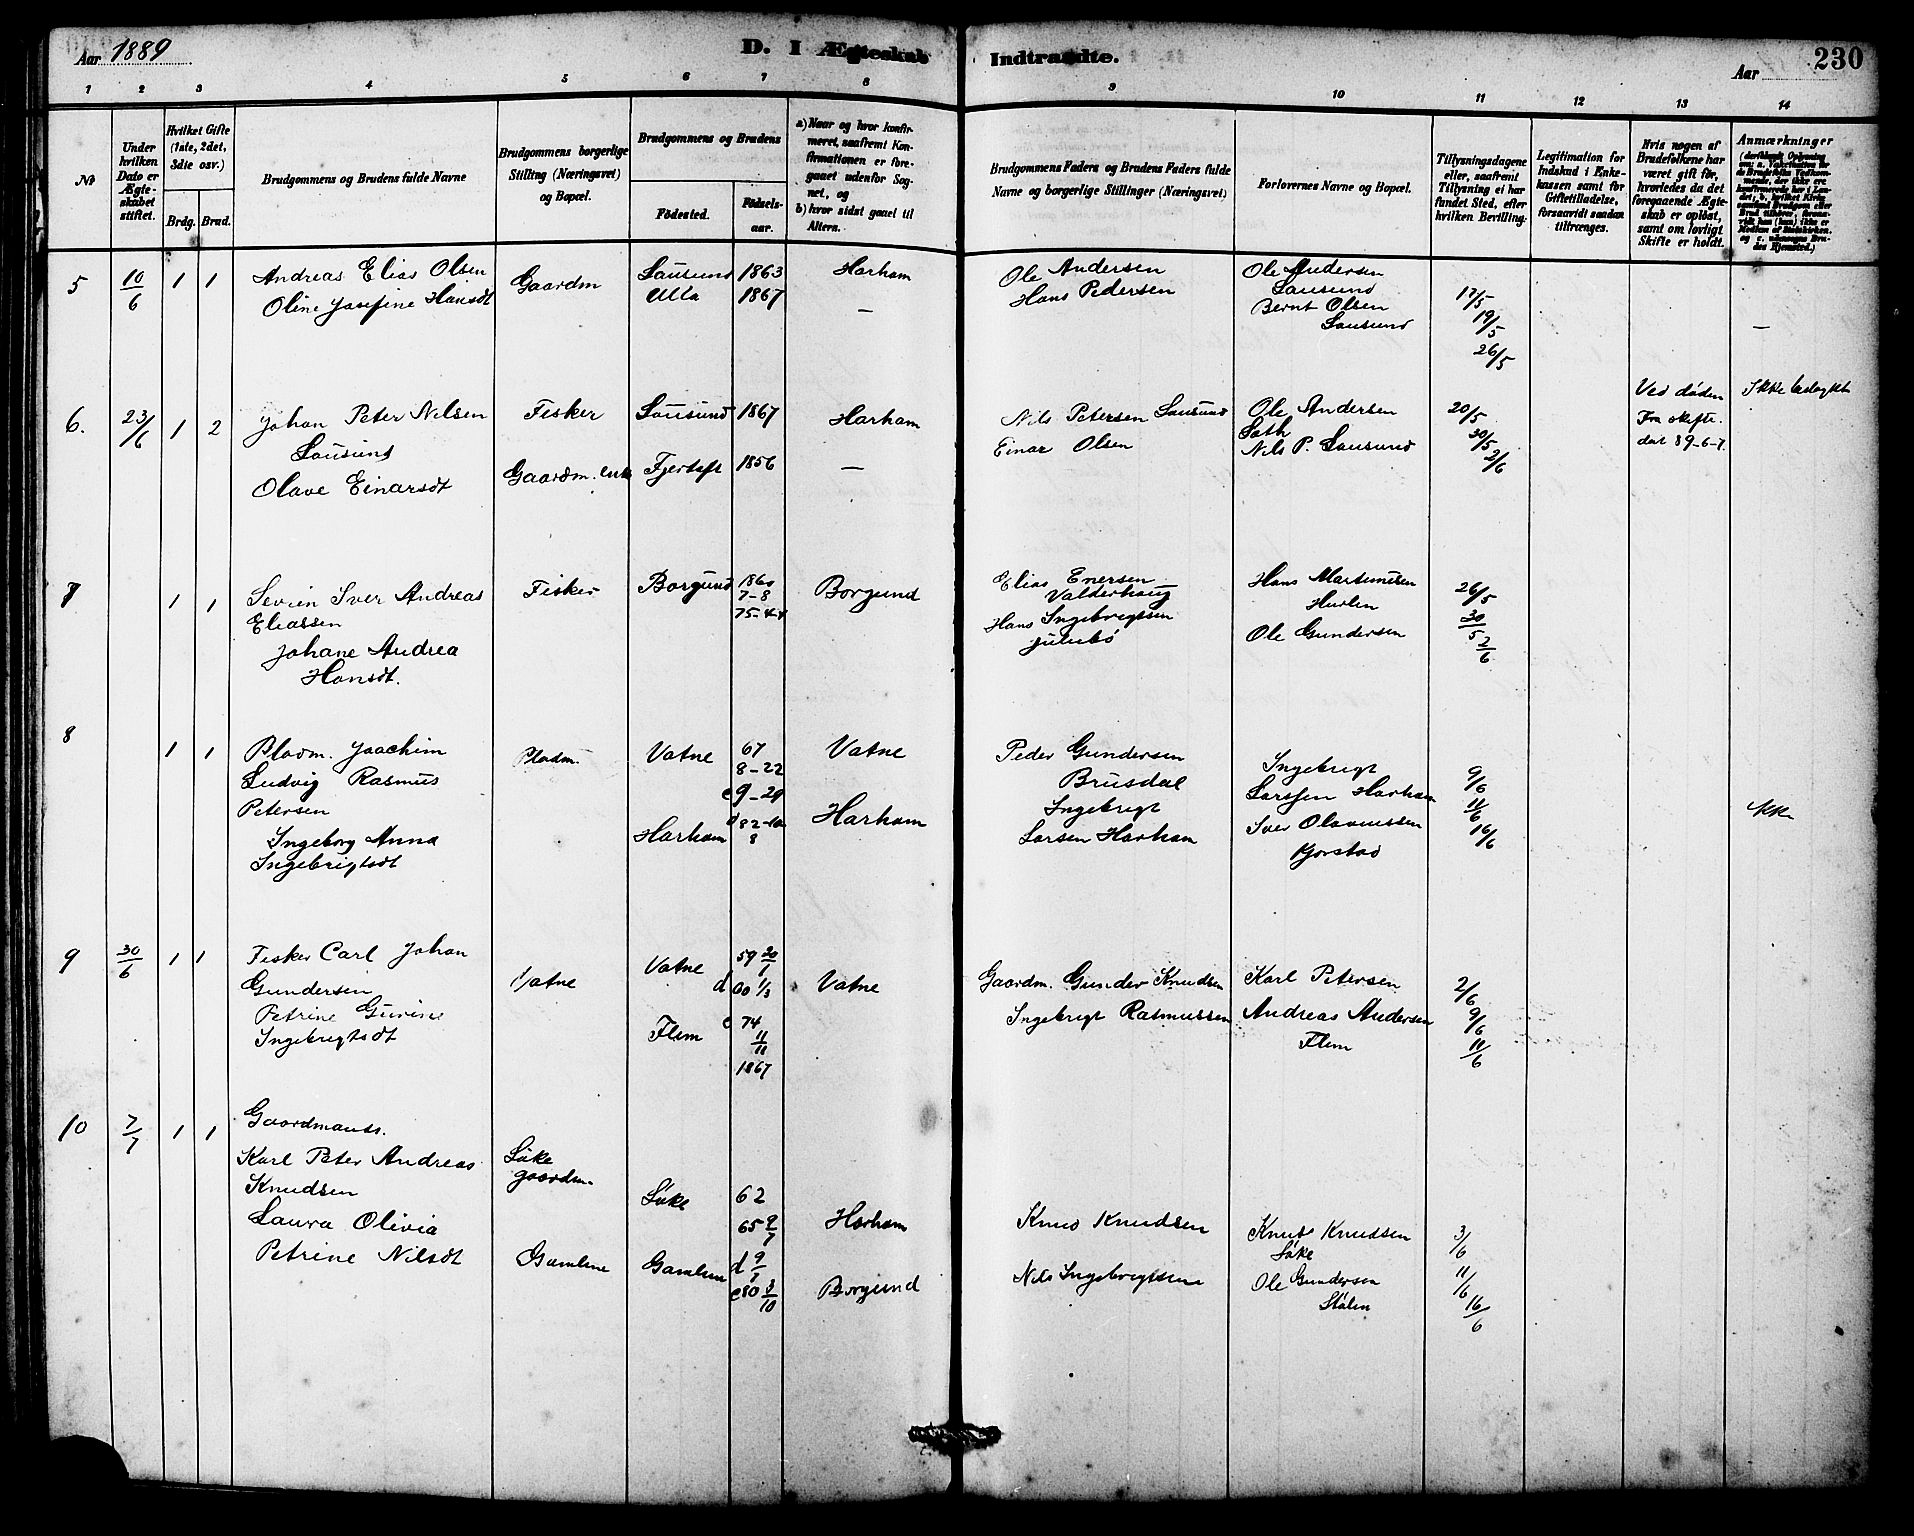 Aar 1889
D. I Ægteskab Indtraadte.
Aar
230
1 2 3 4 5 6 7 8 9 10 11 12 13 14
No
Under hvilken Dato er Ægteskabet stiftet.
Hvilket Gifte (1ste, 2det, 3die osv.)
Brdg. Brud.
Brudgommens og Brudens fulde Navne
Brudgommens borgerlige Stilling (Næringsvei) og Bopæl.
Brudgommens og Brudens
Fødested.
Fødselsaar.
a) Naar og hvor konfirmeret, saafremt Konfirmationen er foregaaet udenfor Sognet, og
b) hvor sidst gaaet til Alters.
Brudgommens Faders og Brudens Faders fulde Navne og borgerlige Stillinger (Næringsvei)
Forlovernes Navne og Bopæl.
Tillysningsdagene eller, saafremt Tillysning ei har fundet Sted, efter hvilken Bevilling.
Legitimation for Indskud i Enkekassen samt for Giftetilladelse, forsaavidt saadan tiltrænges.
Hvis nogen af Brudefolkene har været gift før, hvorledes da det foregaaende Ægteskab er opløst, samt om lovligt Skifte er holdt.
Anmærkninger
5 10/6 1 1
Andreas Elias Olsen
Oline Josefine Hansdt
Gaardm
Lausund 1863
Ulla 1867
Harham
—
Ole Andersen
Hans Pedersen
Ole Andersen
Lausund
Bernt Olsen
Lausund
12/5
19/5
26/5
—
6. 23/6 1 2
Johan Peter Nilsen
Lausund
Olave Einarsdt
Fisker
Gaardm. enke
Lausund 1867
Fjertoft 1856
Harham
—
Nils Petersen Lausund
Einar Olsen
Ole Andersen
Nils P. Lausund
20/5
30/5
2/6
Ved døden
Fra skifte.
dat 89-6-7.
Ikke beslegtet
7 1 1
Sevrin Iver Andreas
Eliassen
Johane Andrea
Hansdt.
Fisker
Borgund
1860
7-8
75-4-4
Borgund
Elias Enersen
Valderhaug
Hans Ingebregtsen
Ole Gundersen
Hans Martinusen
26/5
30/5
2/6
8 1 1
Pladm. Joachim
Ludvig Rasmus
Petersen
Ingeborg Anna
Ingebrigtsdt
Pladm.
Vatne
Harham
67
8-22
c 9-29
d 82-10
8
Vatne
Harham
Peder Gundersen
Brusdal
Ingebrigt
Larsen Harham
Ingebrigt
Larssen Harham
Iver Olavussen
9/6
11/6
16/6
9 30/6 1 1
Fisker Carl Johan
Gundersen
Petrine Gurine
Ingebrigtsdt
Vatne
Vatne
Flem
59 20/1
d 00 1/3
c 74
11/11
1867
Vatne
Gaardm. Gunder Knudsen
Ingebrigt Rasmussen
Karl Petersen
Andreas Andersen
Flem
2/6
9/6
11/6
10 7/7 1 1
Gaardmands.
Karl Peter Andreas
Knudsen
Laura Olivia
Petrine Nilsdt
Søke
gaardm.
Gamlem
Søke
Gamlem
62
65 9/7
d 9/8
c 80 3/10
Harham
Borgund
Knud Knudsen
Nils Ingebregtsen
Knut Knudsen
Søke
Ole Gundersen
Stølen
3/6
11/6
16/6